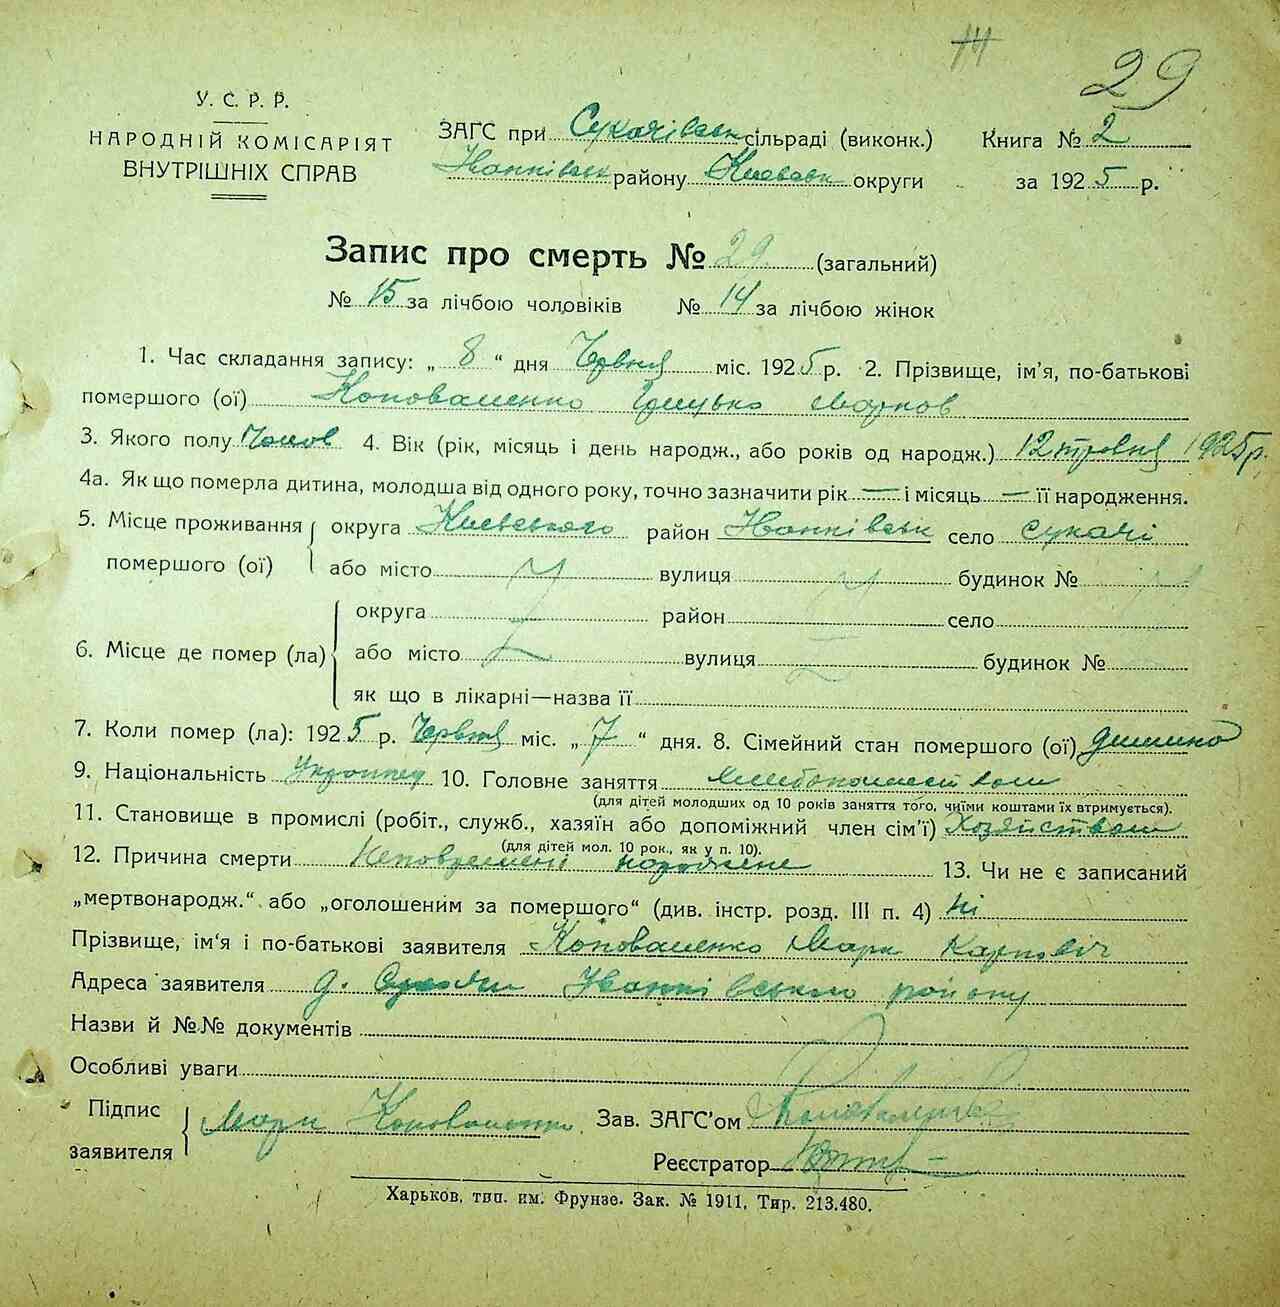 14
29
У. С. Р. Р.
НАРОДНІЙ КОМІСАРІЯТ
ВНУТРІШНІХ СПРАВ
ЗАГС при Сукачівськ сільраді (виконк.)
Іванківськ району Київськ округи
Книга № 2
за 1925 р.
Запис про смерть № 29 (загальний)
№ 15 за лічбою чоловіків № 14 за лічбою жінок
1. Час складання запису: „ 8 “ дня Червня міс. 1925 р. 2. Прізвище, ім'я, по-батькові
помершого (ої) Коноваленко Грицько Марков
3. Якого полу Чолов 4. Вік (рік, місяць і день народж., або років од народж.) 12 травня 1925 р.
4а. Як що померла дитина, молодша від одного року, точно зазначити рік — і місяць — її народження.
5. Місце проживання помершого (ої) округа Київського район Іванківськ село Сукачі
або місто вулиця будинок №
6. Місце де помер (ла) округа район село
або місто вулиця будинок №
як що в лікарні—назва її
7. Коли помер (ла): 1925 р. Червня міс. „ 7 “ дня. 8. Сімейний стан помершого (ої) дитина
9. Національність Українец 10. Головне заняття
(для дітей молодших од 10 років заняття того, чиїми коштами їх втримується).
11. Становище в промислі (робіт., служб., хазяїн або допоміжний член сім'ї)
(для дітей мол. 10 рок., як у п. 10).
12. Причина смерти 13. Чи не є записаний
„мертвонародж.“ або „оголошеним за помершого“ (див. інстр. розд. III п. 4) Ні
Прізвище, ім'я і по-батькові заявителя Коноваленко Марк Карпович
Адреса заявителя д. Сукачи Іванківського району
Назви й №№ документів
Особливі уваги
Підпис заявителя Марк Коноваленко Зав. ЗАГС'ом
Реєстратор
Харьков, тип. им. Фрунзе. Зак. № 1911, Тир. 213.480.